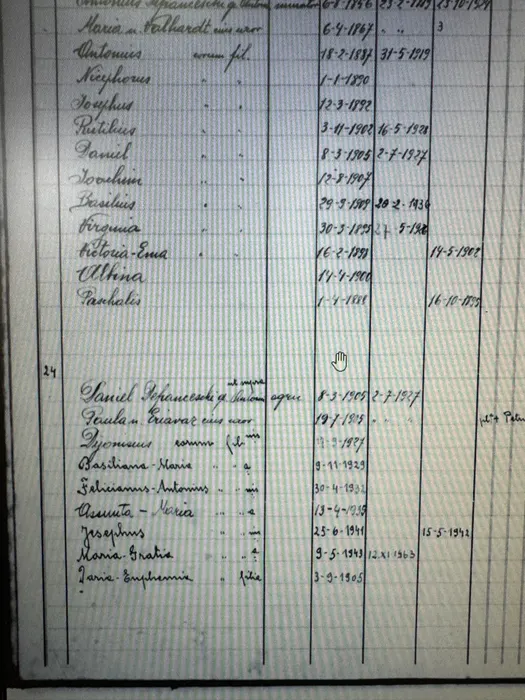 Antonius Depanceschi q. 6-8-1856 23-2-1919
Maria n. Valhardt eius uxor 6-4-1867 " " 3
Antonius eorum fil. 18-2-1887 31-5-1919
Nicephorus " " 1-1-1890
Josephus " " 12-3-1892
Rutilius " " 3-11-1902 16-5-1928
Daniel " " 8-3-1905 2-7-1927
Joachim " " 12-8-1907
Basilius " " 29-9-1909
Virginia " " 30-3-1895
Victoria-Ema " " 16-2-1898 14-5-1902
Albina 14-4-1900
Paschalis 1-4-1888 16-10-1895
24
ut supra
Daniel Depanceschi q. Antonii agric 8-3-1905 2-7-1927
Paula n. Eravaz eius uxor 19-7-1905 " " "
Dyonisius eorum filius 1927
Basiliana-Maria " " a 9-11-1929
Felicianus-Antonius " " us 30-4-1932
Assunta - Maria " " a 13-4-1935
Josephus " " us 23-6-1941 15-5-1942
Maria-Gratia " " a 9-5-1943 12.XI 1963
Maria-Euphemia " " filia 3-9-1905